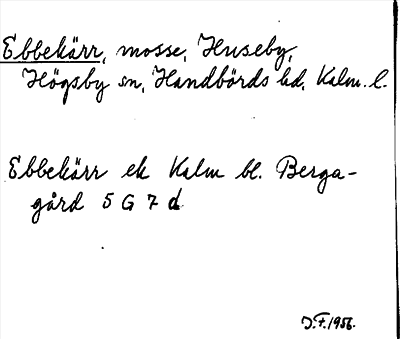 Ebbekärr, mosse, Huseby,
Högsby sn, Handbörds hd, Kalm. l.
Ebbekärr ek Kalm bl. Berga-
gård 5 G 7 d
J.F. 1956.